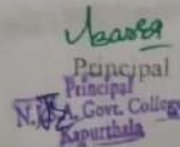 Principal
Principal
Govt. College
Kapurthala